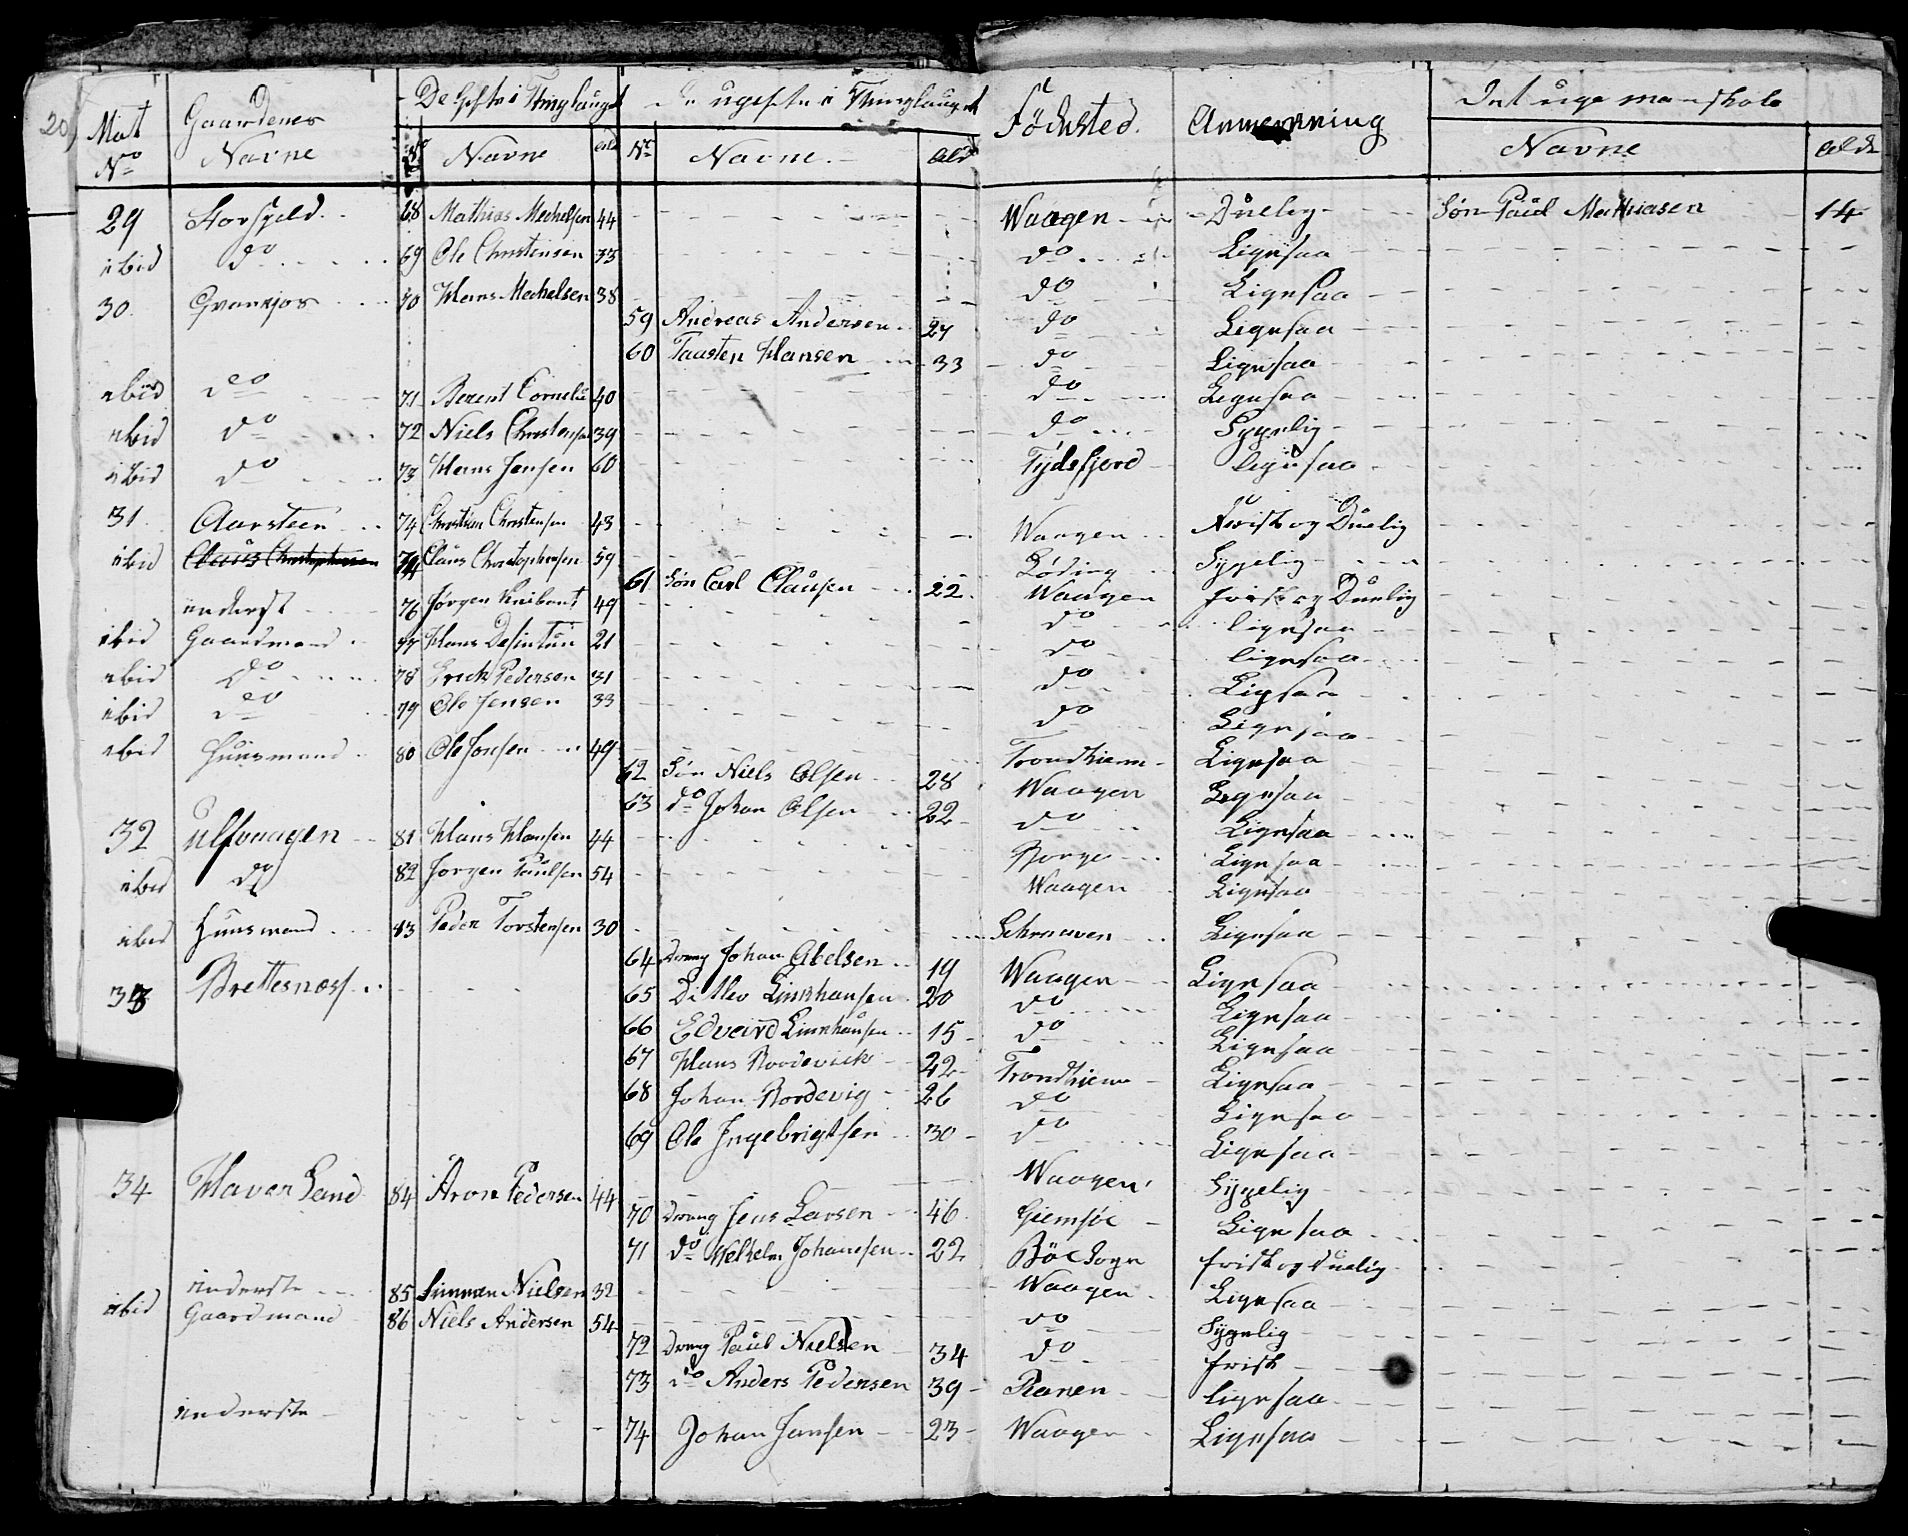 20
Mat No | Gaardenes Navne | De Gifte i Thinglauget | De ugifte i Thinglauget | Fødested. | Anmerkning | Det uge mandskab
No | Navne | Ald | No | Navne. | Ald | Navne | Alder
29 Storfjeld. 68 Mathias Mechelsen 44 Waagen Duelig Søn Paul Mathiasen 14
ibid do 69 Ole Christensen 35 do Ligesaa
30. 70 Hans Mechelsen 38 do Ligesaa
59 Andreas Andersen 27 do Ligesaa
60 Taasten Hansen 33 do Ligesaa
ibid do 71 Berent Corneliu 40 do Ligesaa
ibid do 72 Niels Christensen 39 do Sygelig
ibid do 73 Hans Jensen 60 Tydsfjord ligesaa
31. Aarsteen 74 Christian Christensen 43 Waagen Frisk og Duelig
ibid Claus Christophersen Claus Christophersen 59 Løding Sygelig
61 Søn Carl Clausen 22. Waagen frisk og Duelig
inderst 76 Jørgen 49 do ligesaa
ibid Gaardmand 77 Hans 21 do ligesaa
ibid do 78 Erick Pedersen 31 do Ligsaa
ibid do 79 Ole Jensen 33 do Ligesaa
ibid Huusmand 80 Ole Jonsen 49 Trondhiem Ligesaa
62 Søn Niels Olsen 28 Waagen Ligesaa
63 do Johan Olsen 22 do Ligesaa
32 Ulfvaagen 81 Hans Hansen 44 Borge Ligesaa
ibid do 82 Jørgen Paulsen 54 Waagen Ligesaa
ibid Huusmand 83 Peder Torstensen 30 Schraaven Ligesaa
64 Dreng Johan Abelsen 19 Waagen Ligesaa
33 Brettesness 65 Ditlev Linkhausen 20 do Ligesaa
66 Edvard Linkhausen 15 do Ligesaa
67 Hans Bordevick 22 Trondhiem Ligesaa
68 Johan Bordevig 26 do Ligesaa
69 Ole Ingebrigtsen 30 do Ligesaa
34 Haver Sand 84 Aron Pedersen 44 Waagen Sygelig
70 Dreng Jens Larsen 46 Giemsøe Ligesaa
71 do Welhelm Johansen 22 Bøe Sogn frisk og Duelig
inderste 85 Simmen Nielsen 32 Waagen Ligesaa
ibid Gaardmand 86 Niels Andersen 54 do Sygelig
72 Dreng Paul Nielsen 34 do frisk
73 do Anders Pedersen 39 Ranen ligesaa
inderste 74 Johan Jansen 23 Waagen Ligesaa